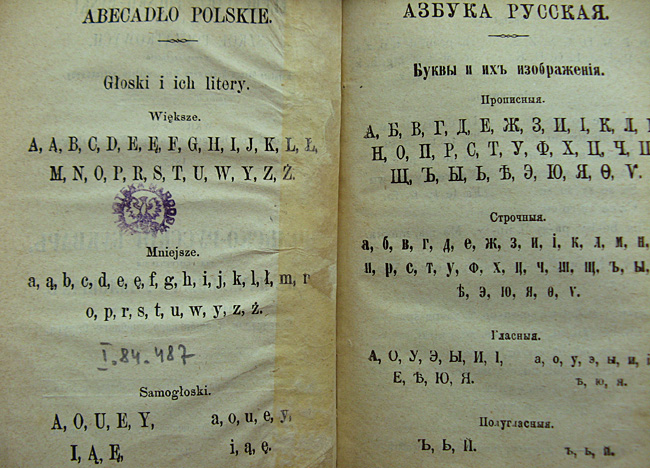 ABECADŁO POLSKIE.
Głoski i ich litery.
Większe.
A, A, B, C, D, E, Ę, F, G, H, I, J, K, L, Ł,
M, N, O, P, R, S, T, U, W, Y, Z, Ż.
Mniejsze.
a, ą, b, c, d, e, ę, f, g, h, i, j, k, l, ł, m,
o, p, r, s, t, u, w, y, z, ż.
I.84.487
Samogłoski.
A, O, U, E, Y, a, o, u, e, y,
I, Ą, Ę, i, ą, ę.
АЗБУКА РУССКАЯ.
Буквы и ихъ изображенія.
Прописныя.
А, Б, В, Г, Д, Е, Ж, З, И, І, К, Л,
Н, О, П, Р, С, Т, У, Ф, Х, Ц, Ч,
Щ, Ъ, Ы, Ь, Ѣ, Э, Ю, Я, Ѳ, Ѵ.
Строчныя.
а, б, в, г, д, е, ж, з, и, і, к, л, м, н,
п, р, с, т, у, ф, х, ц, ч, ш, щ, ъ, ы,
ѣ, э, ю, я, ѳ, ѵ.
Гласныя.
А, О, У, Э, Ы, И, І, а, о, у, э, ы, и, і
Е, Ѣ, Ю, Я. ѣ, ю, я.
Полугласныя.
Ъ, Ь, Й. ъ, ь, й.